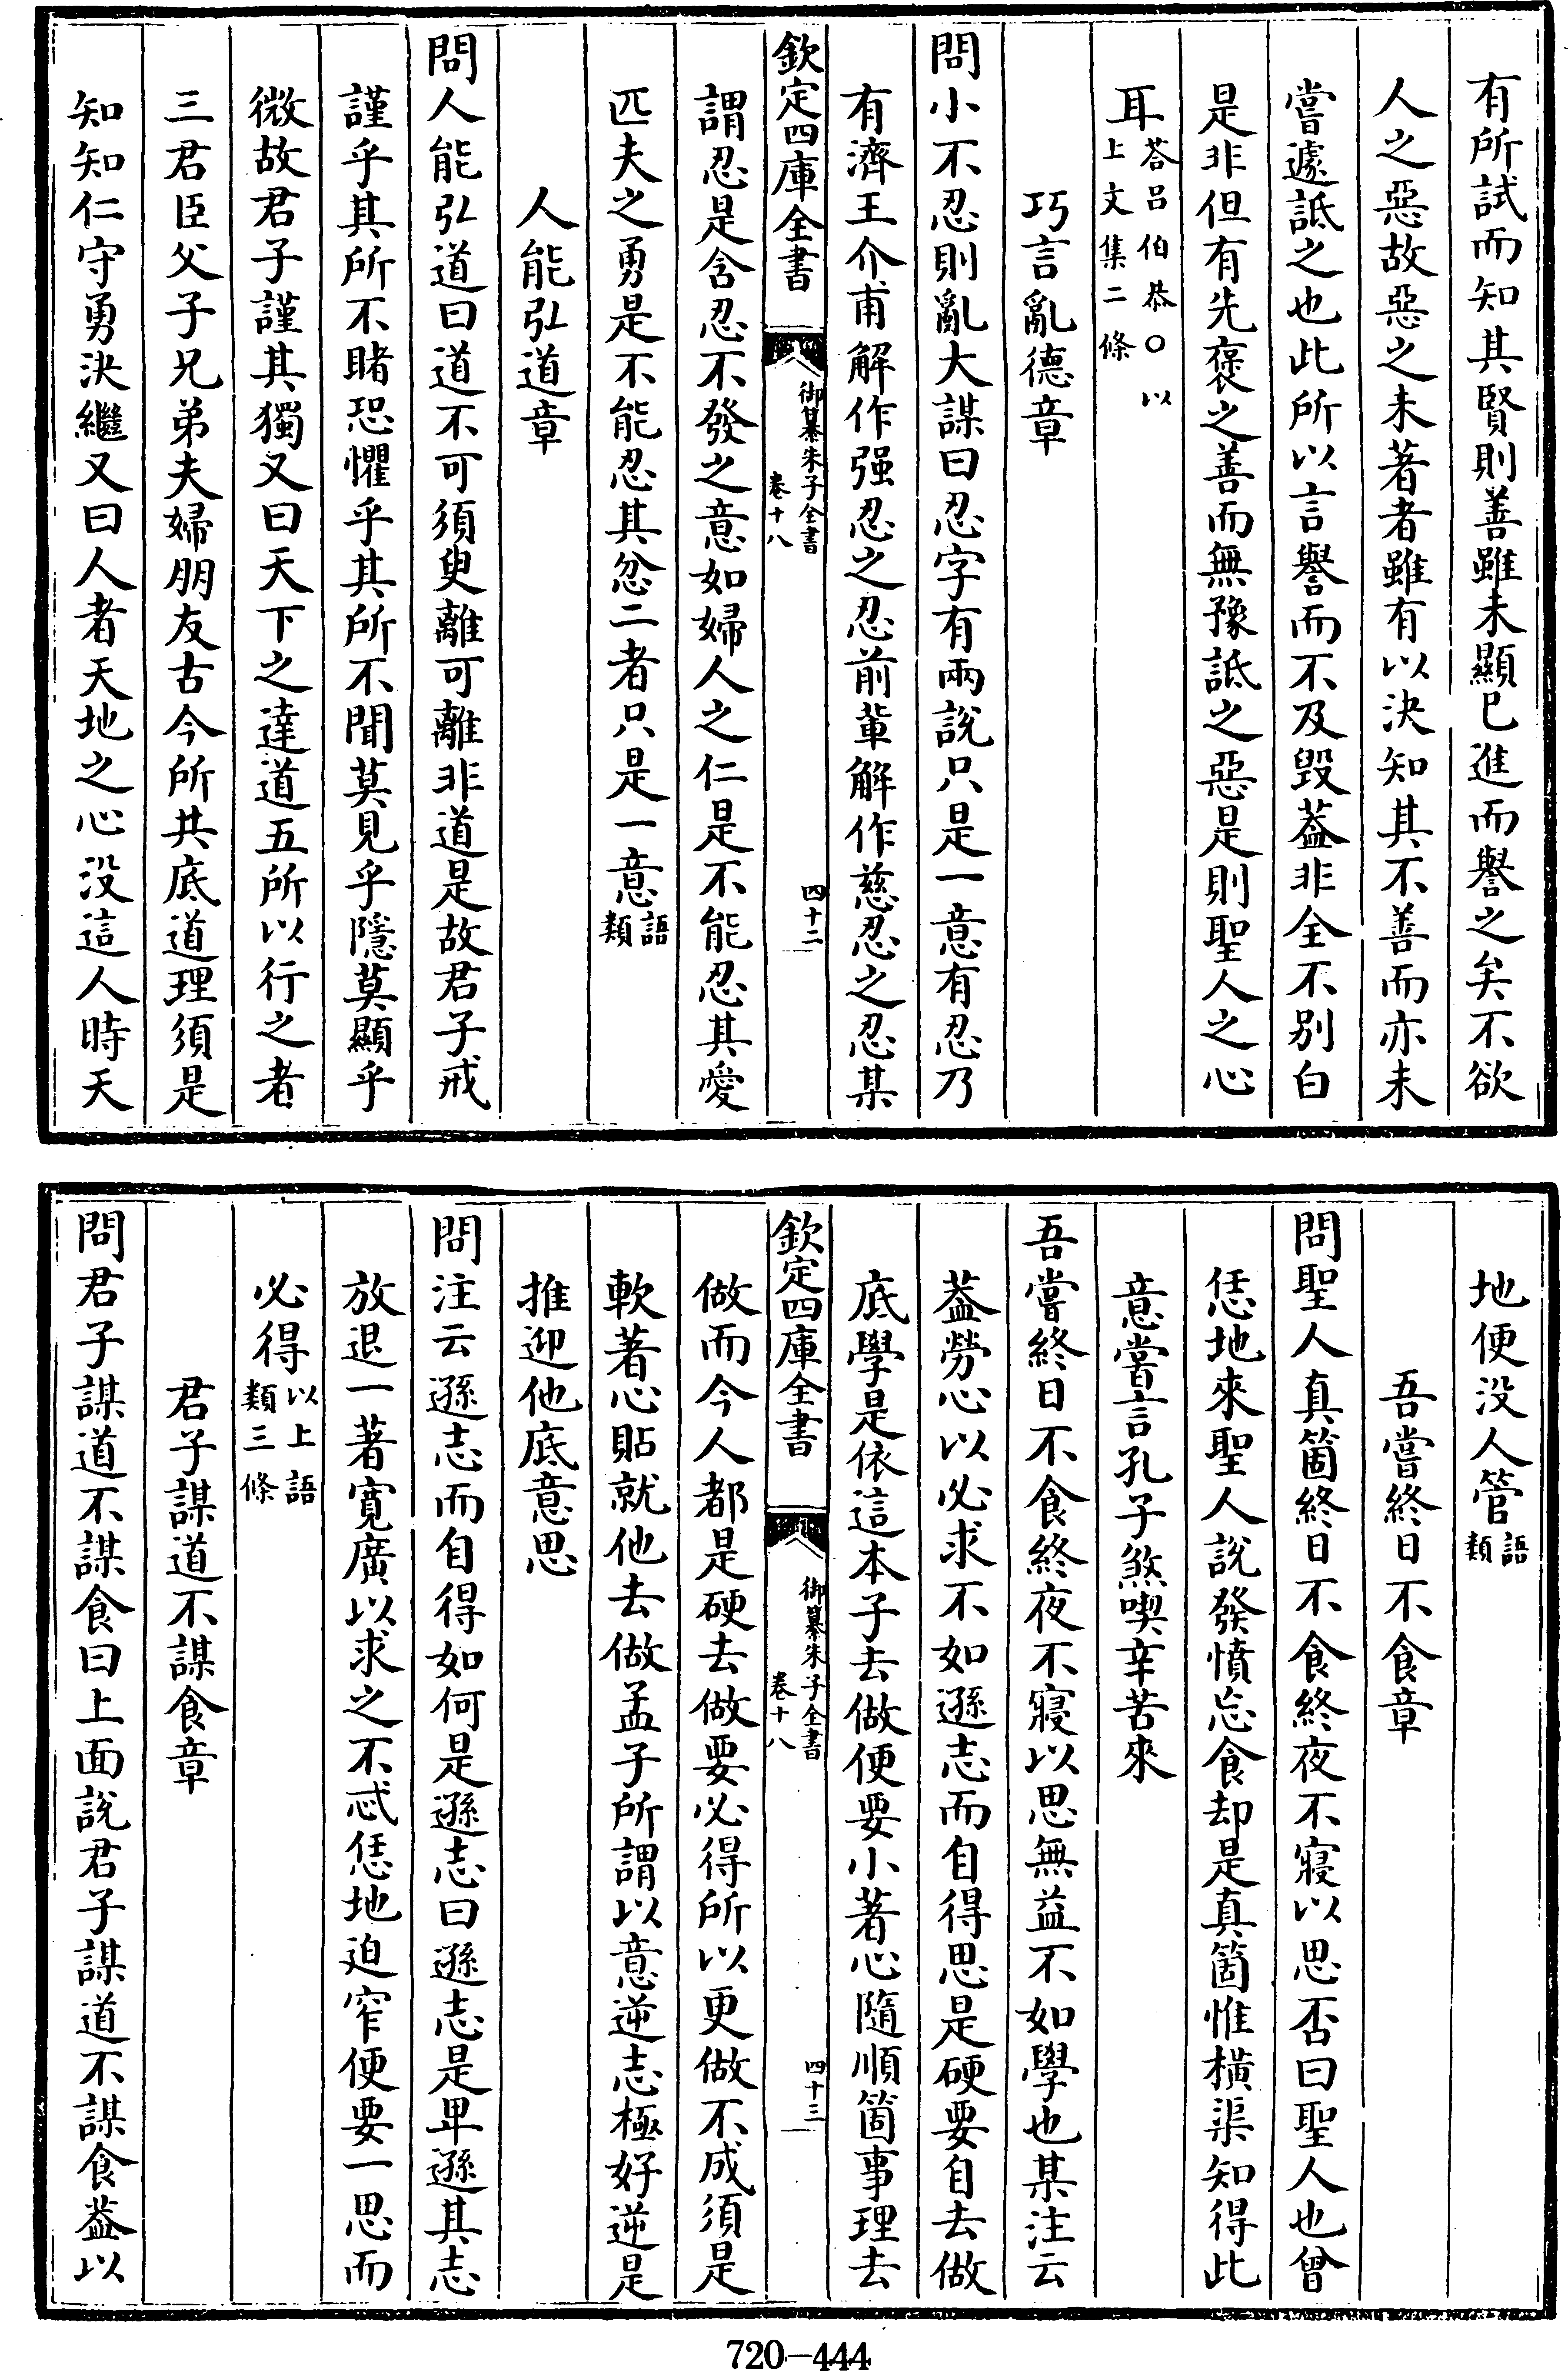 有所試而知其賢則善雖未顯已進而譽之矣不欲
人之惡故惡之未著者雖有以決知其不善而亦未
嘗遽詆之也此所以言譽而不及毀葢非全不别白
是非但有先褒之善而無豫詆之惡是則聖人之心
耳答吕伯恭○以
上文集二條
巧言亂德章
問小不忍則亂大謀曰忍字有兩說只是一意有忍乃
有濟王介甫解作强忍之忍前輩解作慈忍之忍某
欽定四庫全書
御纂朱子全書
卷十八
四十二
謂忍是含忍不發之意如婦人之仁是不能忍其愛
匹夫之勇是不能忍其忿二者只是一意語
類
人能弘道章
問人能弘道曰道不可須臾離可離非道是故君子戒
謹乎其所不睹恐懼乎其所不聞莫見乎隱莫顯乎
微故君子謹其獨又曰天下之達道五所以行之者
三君臣父子兄弟夫婦朋友古今所共底道理須是
知知仁守勇決繼又曰人者天地之心没這人時天
地便没人管語
類
吾嘗終日不食章
問聖人真箇終日不食終夜不寢以思否曰聖人也曾
恁地來聖人說發憤忘食却是真箇惟橫渠知得此
意嘗言孔子煞喫辛苦來
吾嘗終日不食終夜不寢以思無益不如學也某注云
葢勞心以必求不如遜志而自得思是硬要自去做
底學是依這本子去做便要小著心隨順箇事理去
欽定四庫全書
御纂朱子全書
卷十八
四十三
做而今人都是硬去做要必得所以更做不成須是
軟著心貼就他去做孟子所謂以意逆志極好逆是
推迎他底意思
問注云遜志而自得如何是遜志曰遜志是卑遜其志
放退一著寛廣以求之不忒恁地迫窄便要一思而
必得以上語
類三條
君子謀道不謀食章
問君子謀道不謀食曰上面說君子謀道不謀食葢以
720-444